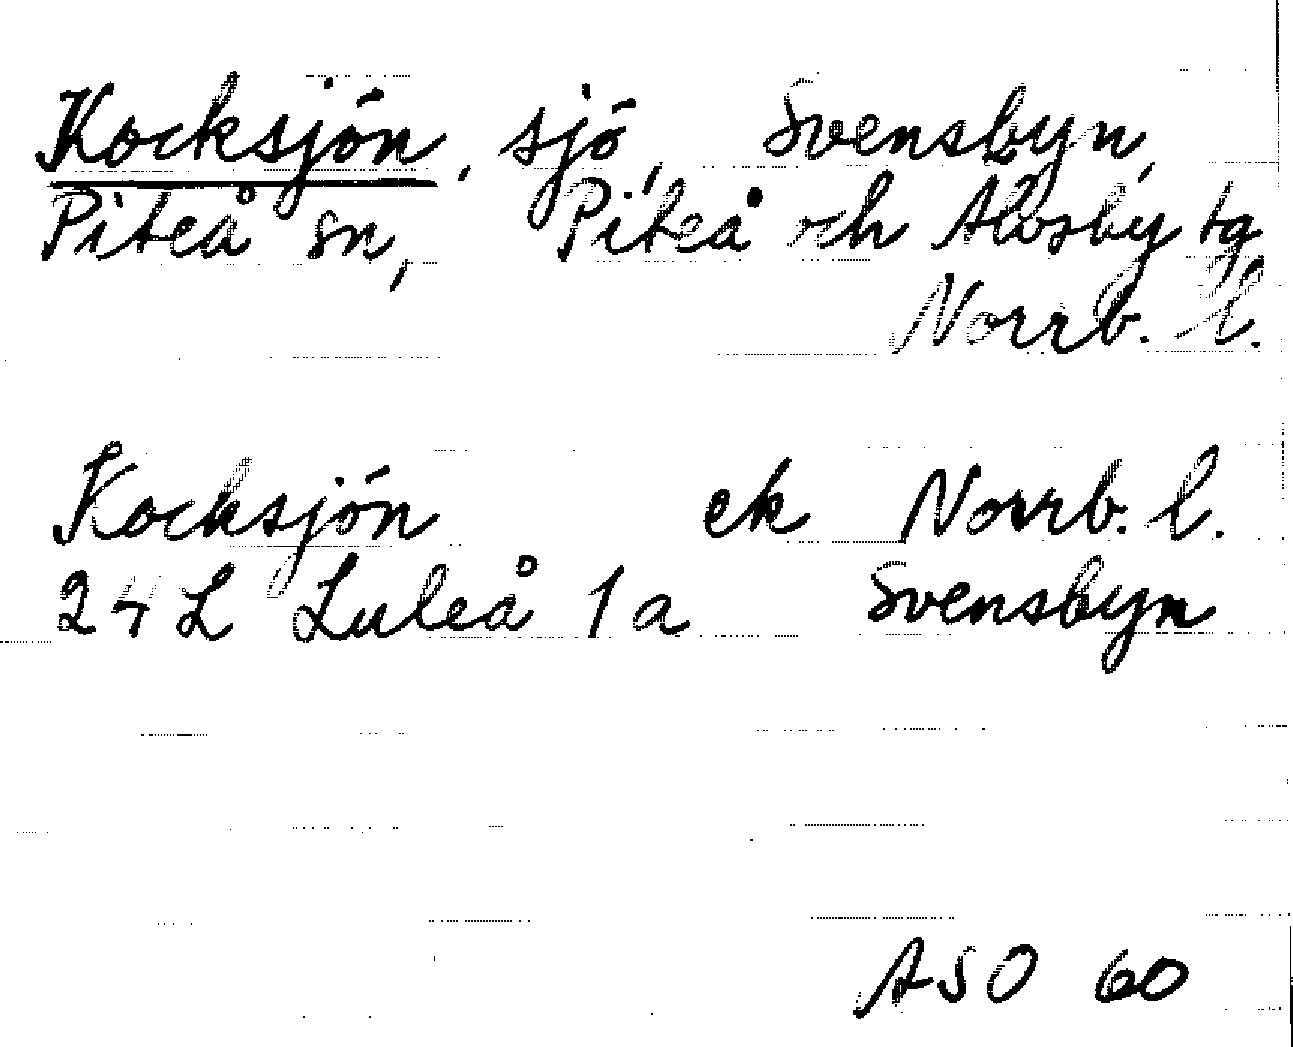 Kocksjön, sjö, Svensbyn,
Piteå sn, Piteå och Älvsby tg
Norrb. l.
Kocksjön ek Norrb. l.
24 L Luleå 1a Svensbyn
ASO 60